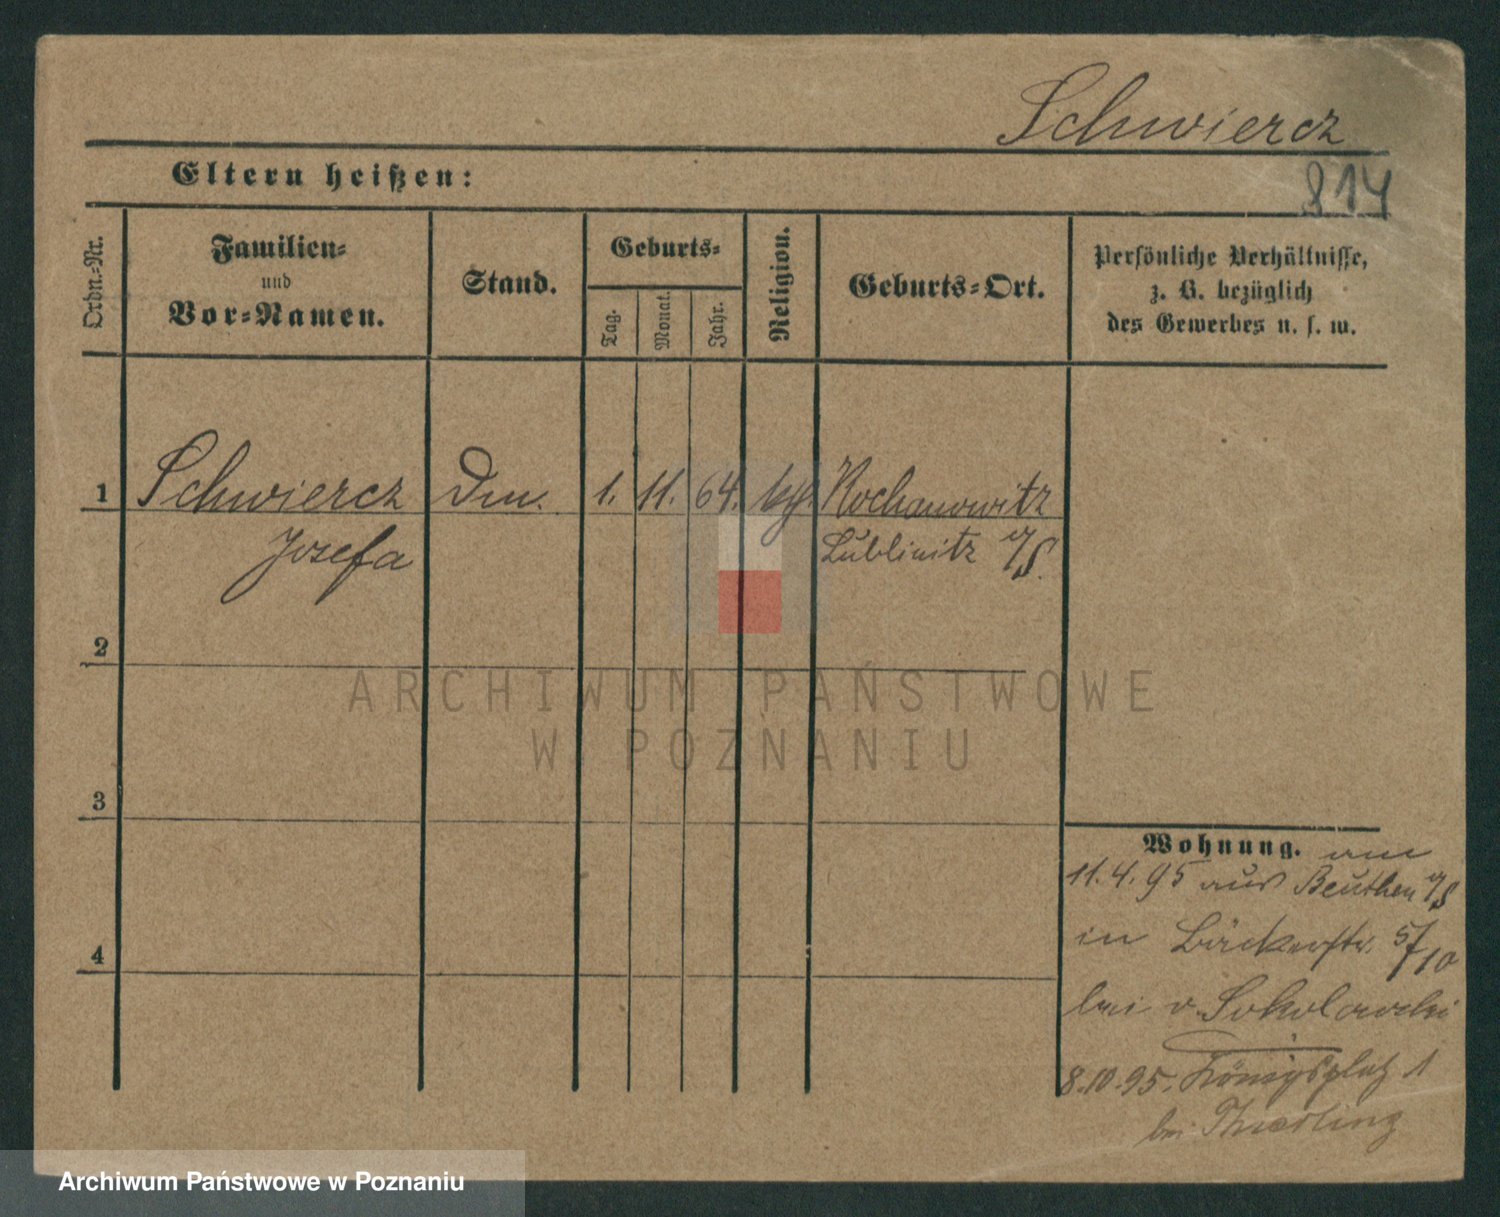 Schwiercz
Eltern heißen:
814
Ordn.-Nr.
Familien-
und
Vor-Namen.
Stand.
Geburts-
Tag.
Monat.
Jahr.
Religion.
Geburts-Ort.
Persönliche Verhältnisse,
z. B. bezüglich
des Gewerbes u. s. w.
1 Schwiercz 1. 11. 64. Kochanowitz
Josefa Lublinitz O/S.
2
3
4
Wohnung. am
11.4.95 aus Beuthen O/S
in Bäckerstr. 5/10
bei v. Sokolowski
8.10.95. Königsplatz 1
bei
ARCHIWUM PAŃSTWOWE
W POZNANIU
Archiwum Państwowe w Poznaniu